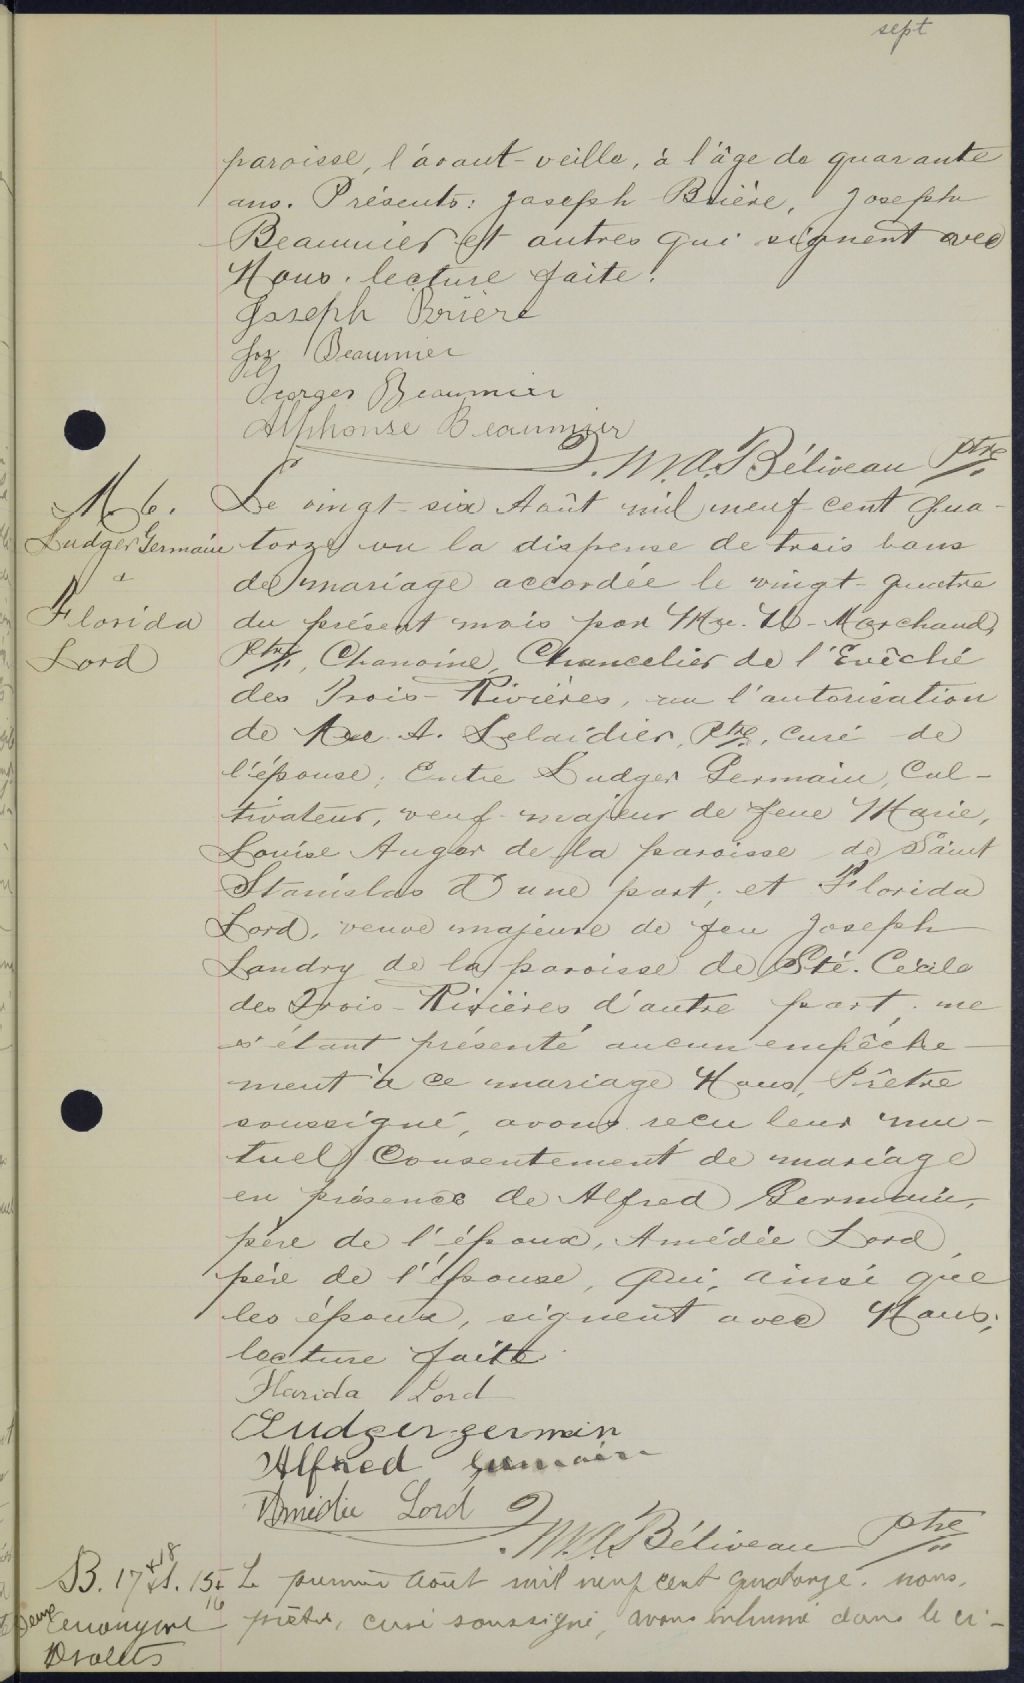 sept
paroisse, l'avant-veille, à l'âge de quarante
ans. Présents: Joseph Brière, Joseph
Beaumier et autres qui signent avec
Nous. lecture faite.
Joseph Brière
Jos Beaumier
Georges Beaumier
Alphonse Beaumier
M.A. Béliveau Ptre
M. 6.
Ludger Germain
&
Florida
Lord
Le vingt-six Août mil neuf cent qua-
torze vu la dispense de trois bans
de mariage accordée le vingt-quatre
du présent mois par Mr. U. Marchand,
Ptre, Chanoine, Chancelier de l'Evêché
des Trois-Rivières, vu l'autorisation
de Mr. A. Lelaidier, Ptre, curé de
l'épouse; Entre Ludger Germain, Cul-
tivateur, veuf majeur de feue Marie,
Louise Auger de la paroisse de Saint
Stanislas d'une part; et Florida
Lord, veuve majeure de feu Joseph
Landry de la paroisse de Sté. Cécile
des Trois-Rivières d'autre part; ne
s'étant présenté aucun empêche-
ment à ce mariage Nous, Prêtre
soussigné, avons reçu leur mu-
tuel Consentement de mariage
en présence de Alfred Germain,
père de l'époux, Amédée Lord,
père de l'épouse, qui, ainsi que
les époux, signent avec Nous;
lecture faite.
Florida Lord
Ludger germain
Alfred Germain
Amédée Lord
M.A. Béliveau ptre
B. 17 & 18 & S. 15 & 16
Deux anonyme
Le premier août mil neuf cent quatorze. nous,
prêtre, curé soussigné, avons inhumé dans le ci-